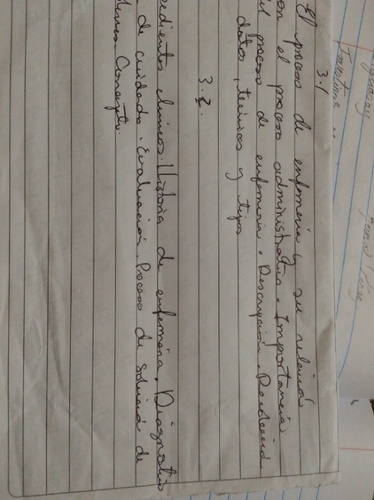 3.1
El proceso de enfermería y su relación
con el proceso administrativo. Importancia
del proceso de enfermería. Descripción. Recolección
datos, técnicas y tipos
3.2.
expedientes clínicos. Historia de enfermería. Diagnostico
de cuidado. Evaluación. Proceso de solución de
Concepto.